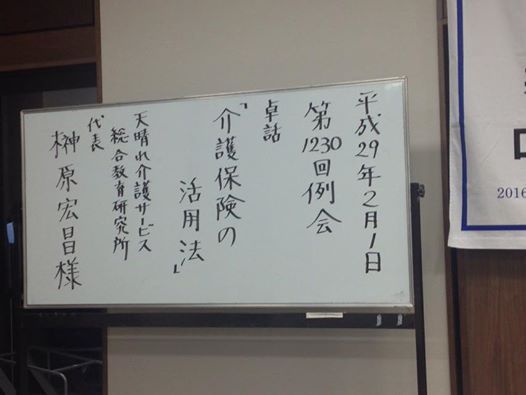 平成29年2月1日
第1230回例会
卓話
「介護保険の
活用法」
天晴れ介護サービス
総合教育研究所
代表
榊原宏昌様
2016